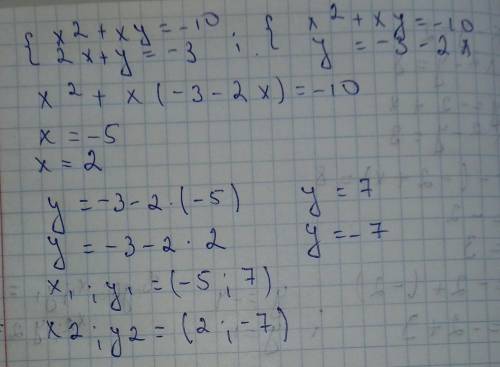 { x² + xy = -10 ; { x² + xy = -10
2x + y = -3 y = -3 - 2x
x² + x(-3-2x) = -10
x = -5
x = 2
y = -3-2·(-5) y = 7
y = -3-2·2 y = -7
x₁ ; y₁ = (-5 ; 7)
x2 ; y2 = (2 ; -7)